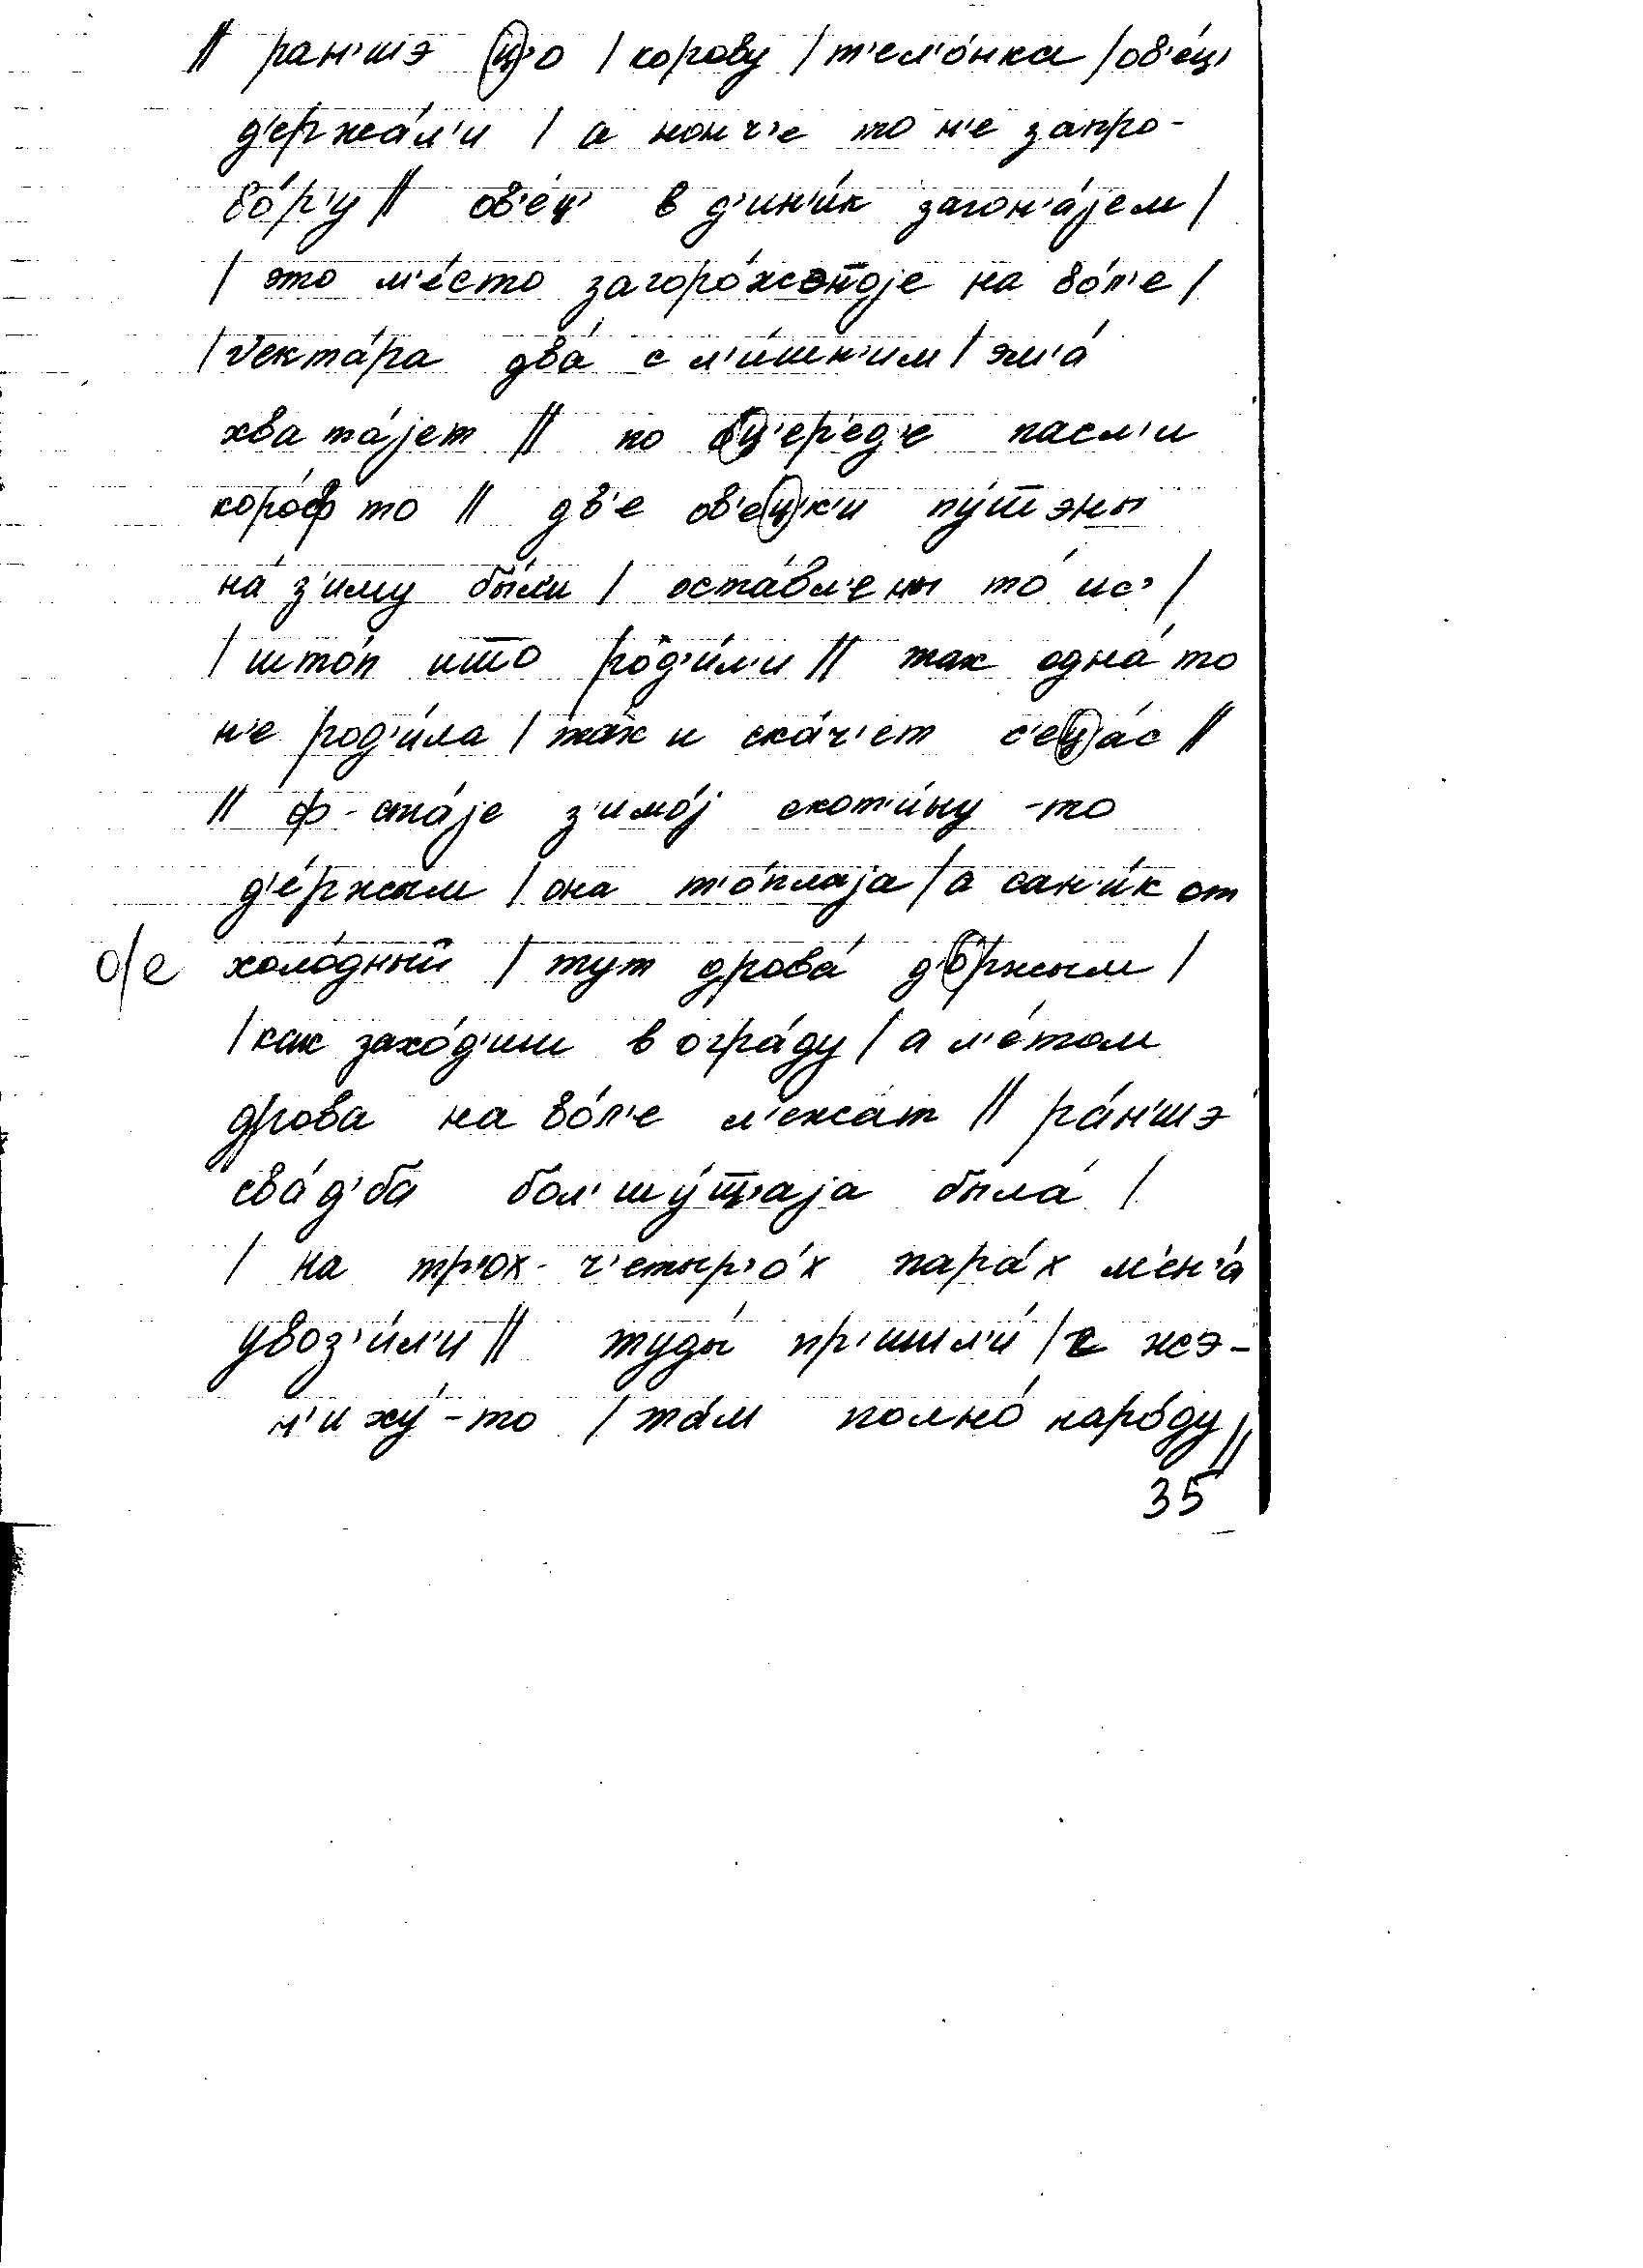 || ран'шэ ц'о | корову | т'ел'о́нка | ов'е́ц'
д'ержа́л'и | а нонч'е то н'е запро-
во́р'у || ов'е́ц' в д'ин'и́к загон'а́јем |
| это м'е́сто загоро́жэноје на во́л'е |
| γекта́ра два́ с л'и́шн'им | эл'а́
хвата́јет || по оц'ер'ед'е пасл'и
коро́ф то || дв'е ов'ецк'и пу́шшэны
на́ з'иму бы́ли | оста́вл'ены то́ ис' |
| што́п што род'и́л'и || так одна́ то
н'е род'и́ла | та́к и ска́ч'ет с'еца́с ||
|| ф-ста́је з'имо́ј скот'и́ну -то
д'е́ржым | она т'о́плаја | а сан'и́к от
о/е холо́дный | тут дрова́ д'о́ржым |
| как захо́д'иш в огра́ду | а л'е́том
дрова на во́л'е л'ежа́т || ра́н'шэ
сва́д'ба бол'шу́шшаја была́ |
| на тр'ох- ч'етыр'о́х пара́х м'ен'а́
увоз'и́л'и || туды́ пр'ишл'и́ | г жэ-
н'иху́-то | та́м полно́ наро́ду ||
35